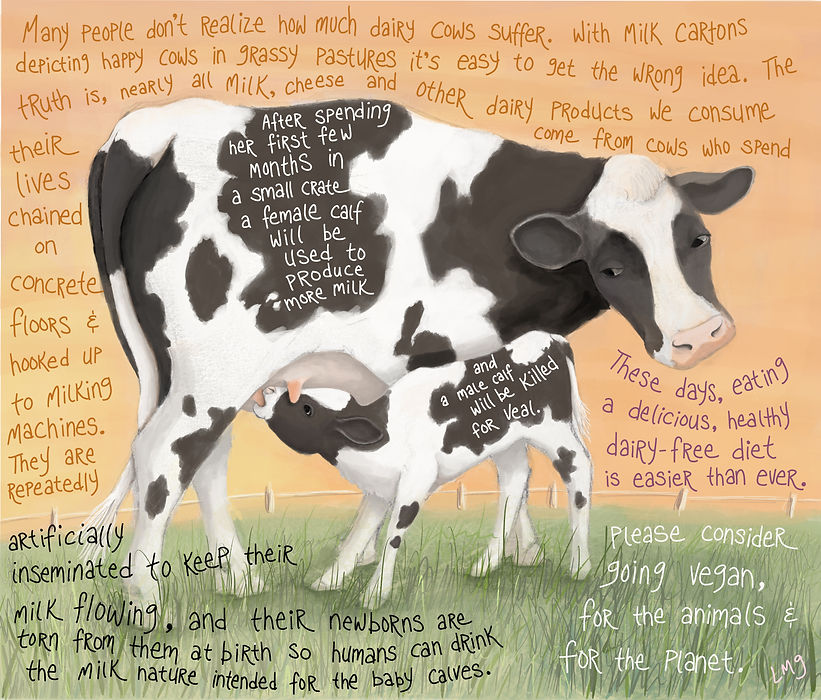 Many people don't realize how much dairy cows suffer. With milk cartons
depicting happy cows in grassy pastures it's easy to get the wrong idea. The
truth is, nearly all milk, cheese and other dairy products we consume
come from cows who spend
their
lives
chained
on
concrete
floors &
hooked up
to milking
machines.
They are
repeatedly
artificially
inseminated to keep their
milk flowing, and their newborns are
torn from them at birth so humans can drink
the milk nature intended for the baby calves.
After spending
her first few
months in
a small crate
a female calf
will be
used to
produce
more milk
and
a male calf
will be killed
for veal.
These days, eating
a delicious, healthy
dairy-free diet
is easier than ever.
Please consider
going vegan,
for the animals &
for the planet.
LMG